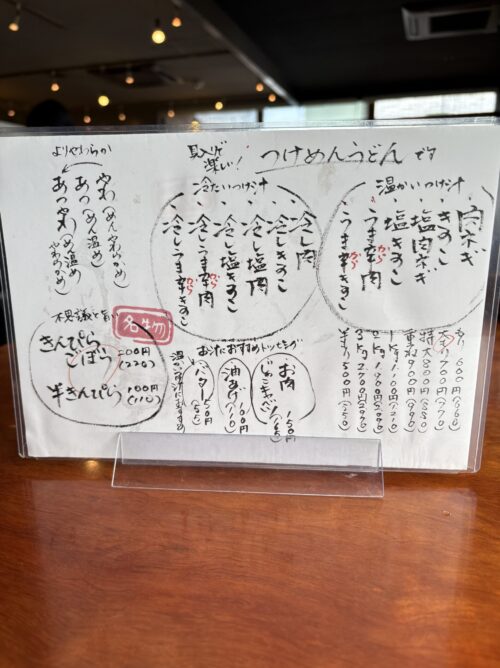 見つけ
楽しい!
つけめんうどん です
温かいつけ汁
・肉ネギ
・きのこ
・塩肉ネギ
・塩きのこ
・うま辛肉
から
・うま辛きのこ
から
冷たいつけ汁
・冷し肉
・冷しきのこ
・冷し塩肉
・冷し塩きのこ
・冷しうま辛肉
から
・冷しうま辛きのこ
から
よりやわらか
やわ(めんやわらかめ)
あつ(めん温め)
あつやわ(めん温めやわらかめ)
もり 600円(660)
大もり 700円(770)
特大 800円(880)
重ね 900円(990)
1kg 1,100円(1,210)
2kg 1,900円(2,090)
3kg 2,700円(2,970)
半もり 500円(550)
お汁におすすめトッピング
お肉
じゃこキャベツ
150円(165)
油あげ 100円(110)
バター 50円(55)
温かい汁におすすめ
名物
きんぴら
ごぼう 200円(220)
半きんぴら 100円(110)